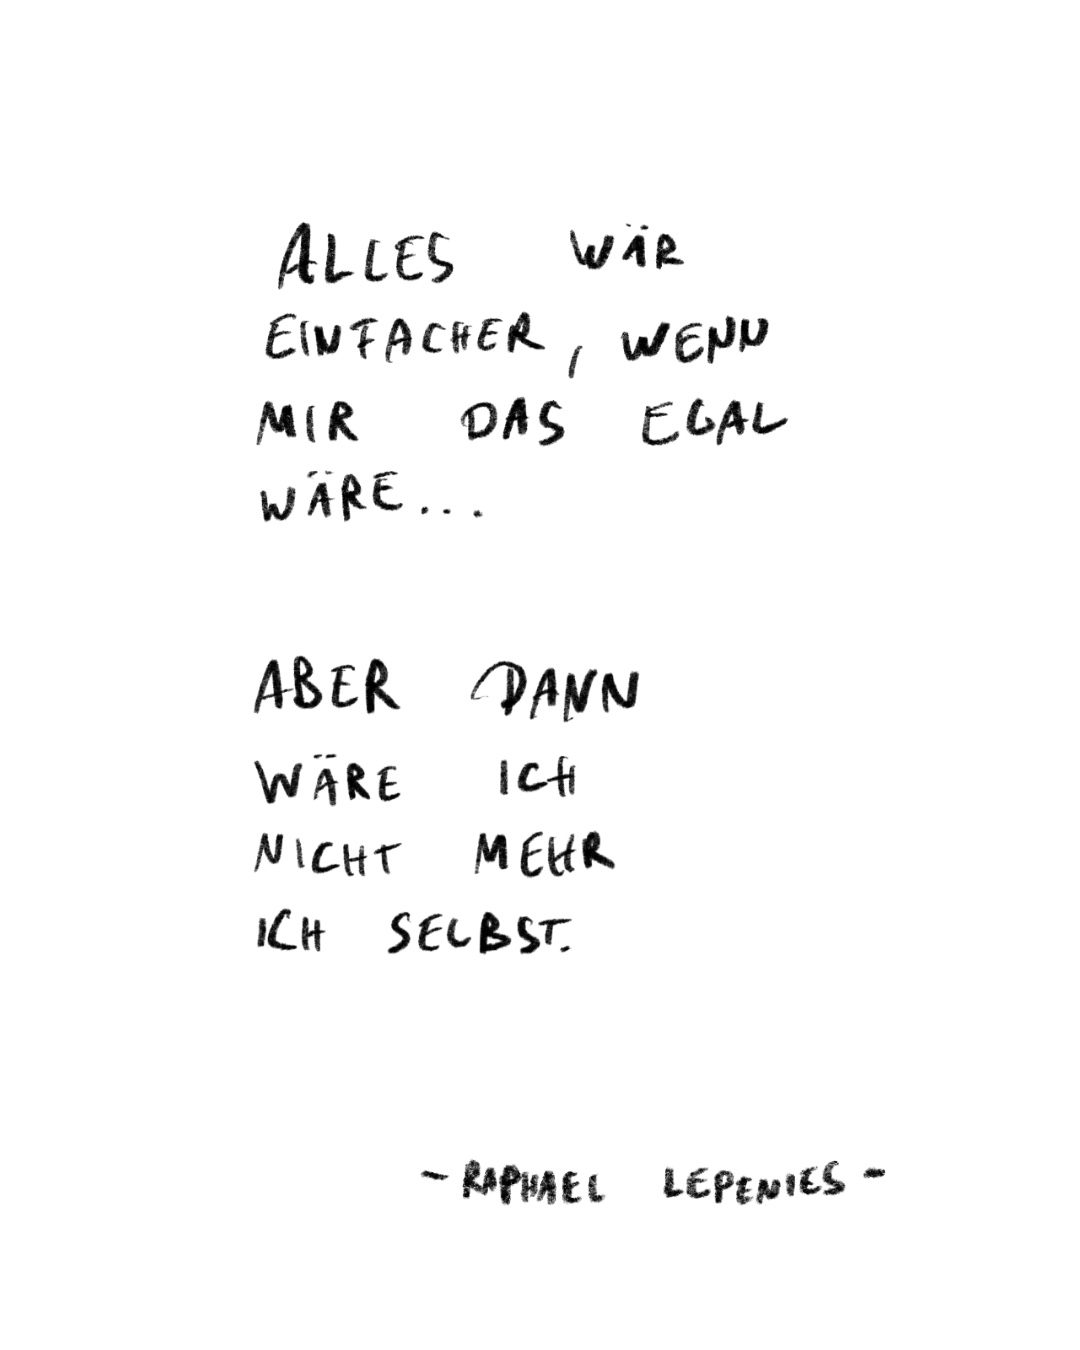 ALLES WÄR
EINFACHER, WENN
MIR DAS EGAL
WÄRE...
ABER DANN
WÄRE ICH
NICHT MEHR
ICH SELBST.
- RAPHAEL LEPENIES -